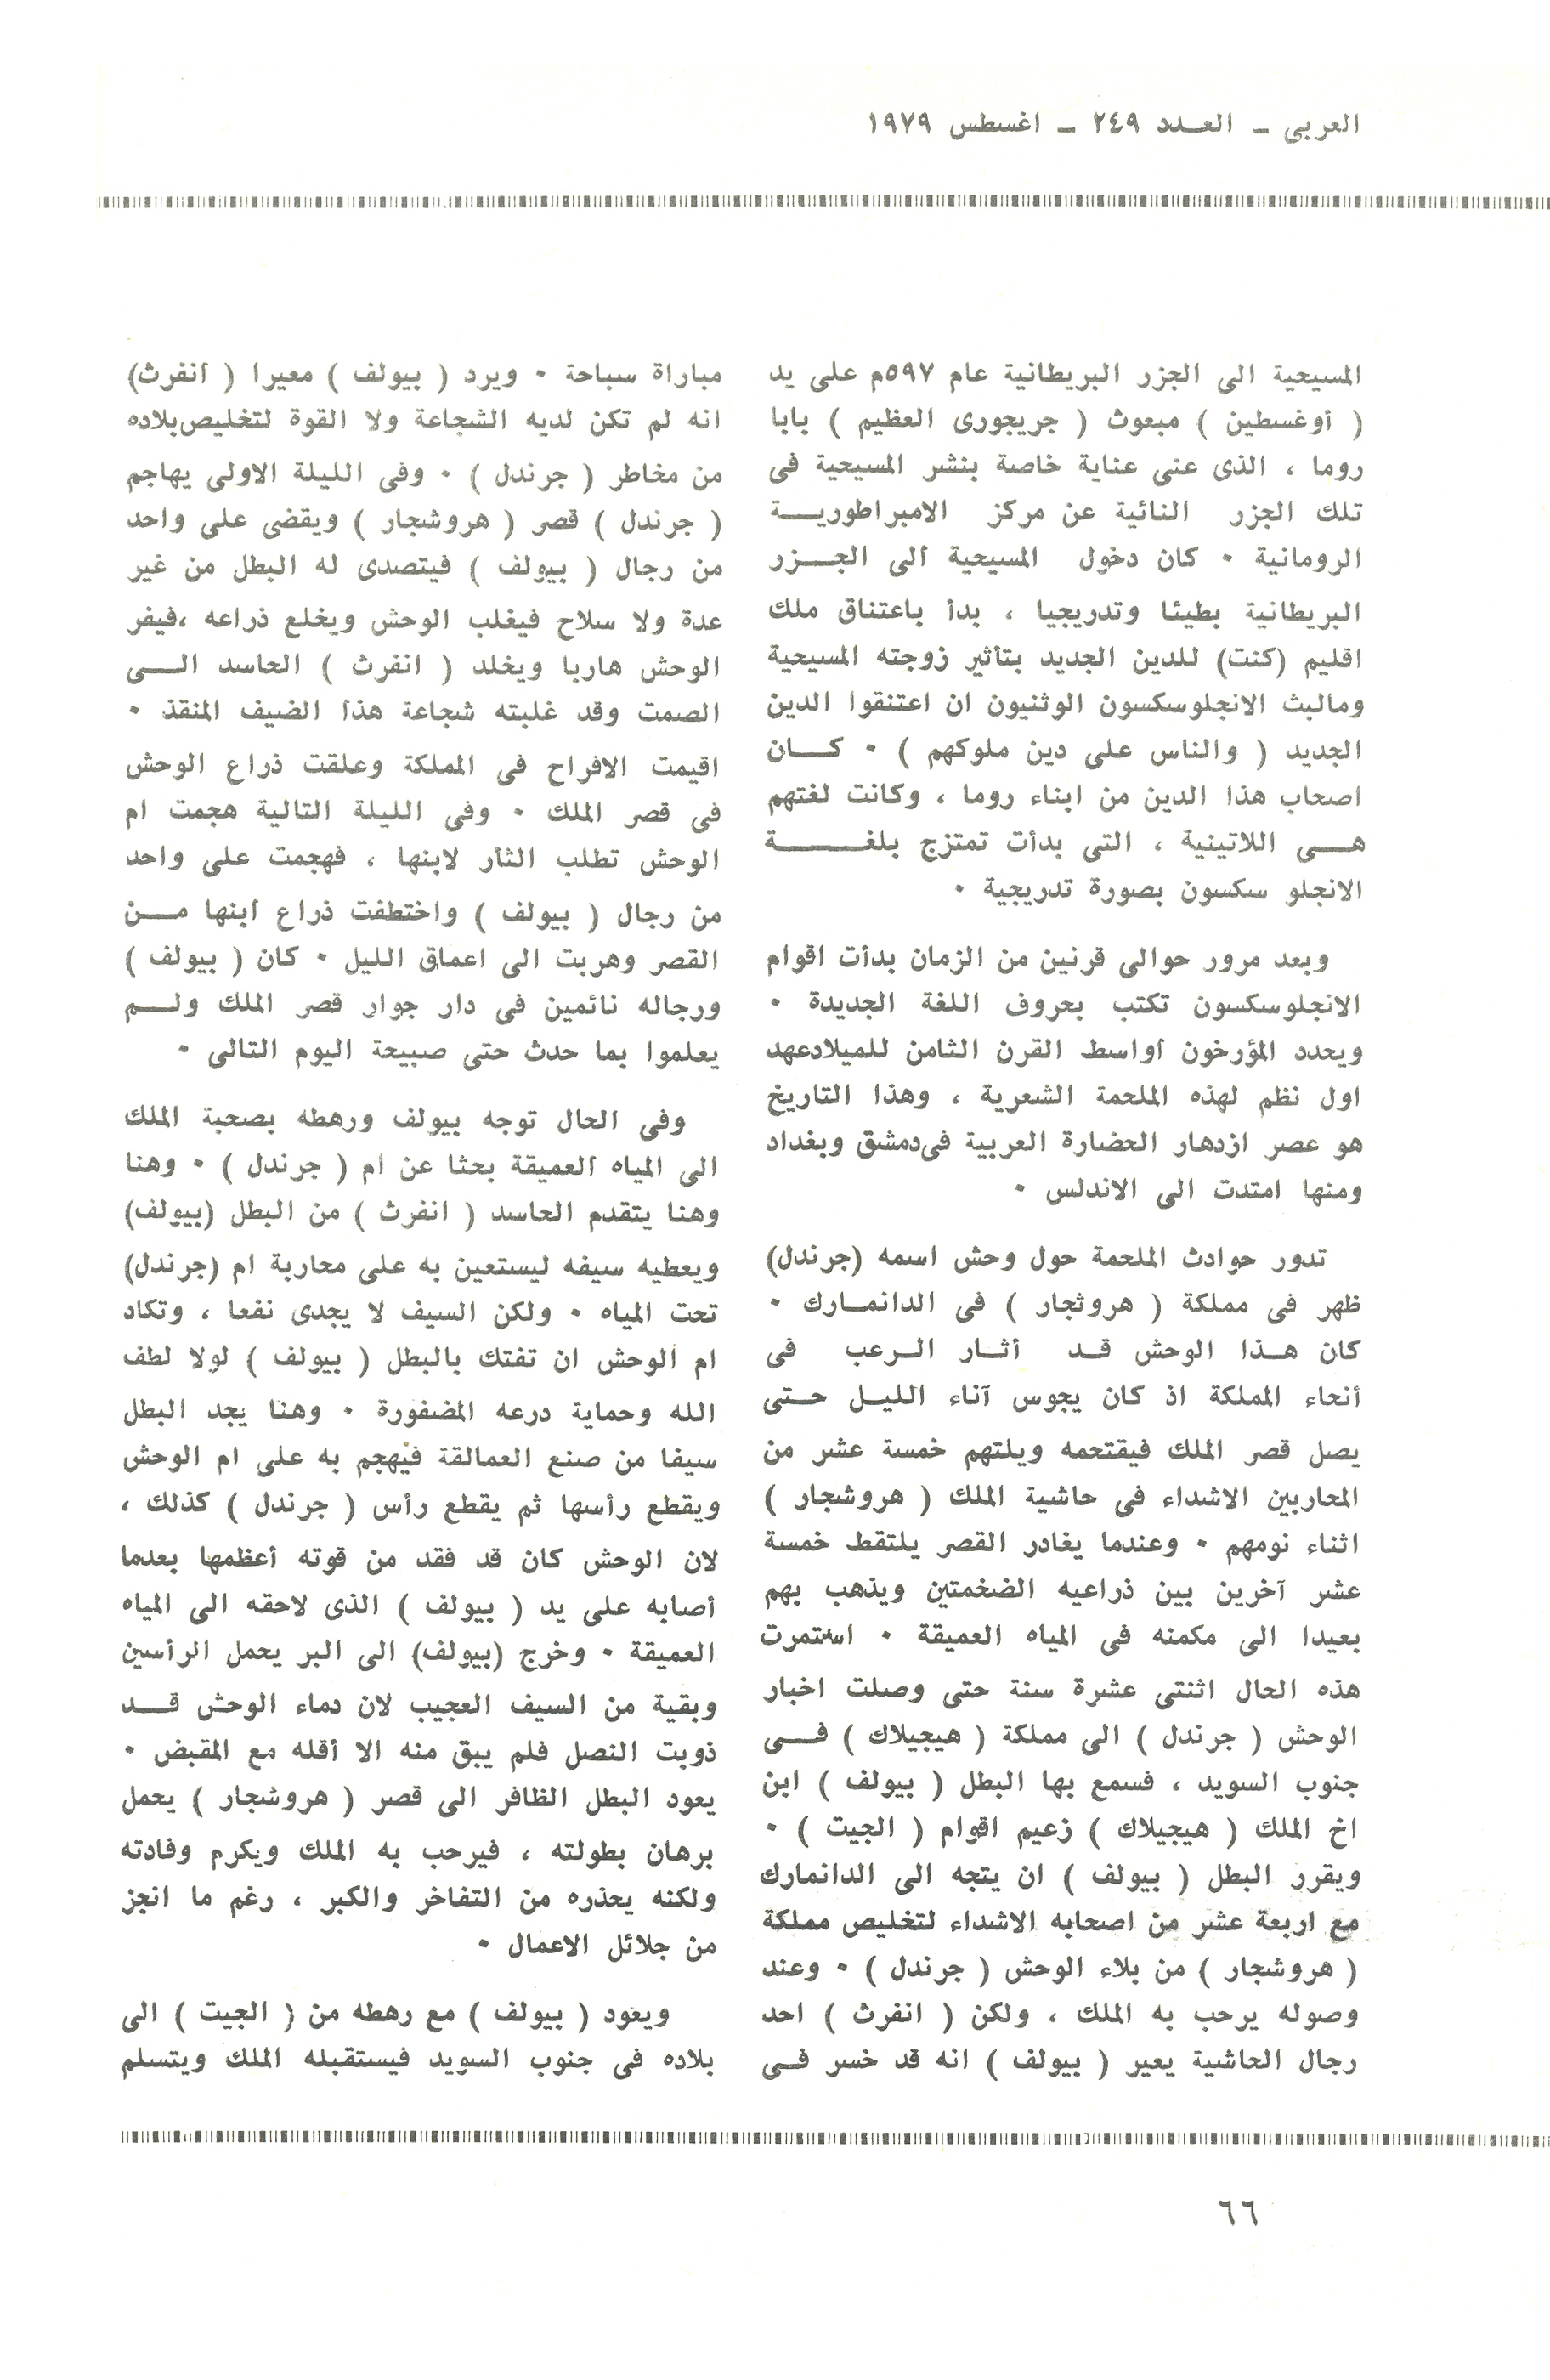 العربى ــ العـدد ٢٤٩ ــ اغسطس ١٩٧٩
المسيحية الى الجزر البريطانية عام ٥٩٧م على يد
( أوغسطين ) مبعوث ( جريجورى العظيم ) بابا
روما ، الذى عنى عناية خاصة بنشر المسيحية فى
تلك الجزر النائية عن مركز الامبراطوريــة
الرومانية ٠ كان دخول المسيحية الى الجــزر
البريطانية بطيئا وتدريجيا ، بدأ باعتناق ملك
اقليم (كنت) للدين الجديد بتأثير زوجته المسيحية
ومالبث الانجلوسكسون الوثنيون ان اعتنقوا الدين
الجديد ( والناس على دين ملوكهم ) ٠ كــان
اصحاب هذا الدين من ابناء روما ، وكانت لغتهم
هــى اللاتينية ، التى بدأت تمتزج بلغــــة
الانجلو سكسون بصورة تدريجية ٠
وبعد مرور حوالى قرنين من الزمان بدأت اقوام
الانجلوسكسون تكتب بحروف اللغة الجديدة ٠
ويحدد المؤرخون أواسط القرن الثامن للميلادعهد
اول نظم لهذه الملحمة الشعرية ، وهذا التاريخ
هو عصر ازدهار الحضارة العربية فىدمشق وبغداد
ومنها امتدت الى الاندلس ٠
تدور حوادث الملحمة حول وحش اسمه (جرندل)
ظهر فى مملكة ( هروثجار ) فى الدانمـارك ٠
كان هـذا الوحش قـد أثـار الـرعب فى
أنحاء المملكة اذ كان يجوس آناء الليـل حـتى
يصل قصر الملك فيقتحمه ويلتهم خمسة عشر من
المحاربين الاشداء فى حاشية الملك ( هروشجار )
اثناء نومهم ٠ وعندما يغادر القصر يلتقط خمسة
عشر آخرين بين ذراعيه الضخمتين ويذهب بهم
بعيدا الى مكمنه فى المياه العميقة ٠ استمرت
هذه الحال اثنتى عشرة سنة حتى وصلت اخبار
الوحش ( جرندل ) الى مملكة ( هيجيلاك ) فــى
جنوب السويد ، فسمع بها البطل ( بيولف ) ابن
اخ الملك ( هيجيلاك ) زعيم اقوام ( الجيت ) ٠
ويقرر البطل ( بيولف ) ان يتجه الى الدانمارك
مع اربعة عشر من اصحابه الاشداء لتخليص مملكة
( هروشجار ) من بلاء الوحش ( جرندل ) ٠ وعند
وصوله يرحب به الملك ، ولكن ( انفرث ) احد
رجال الحاشية يعير ( بيولف ) انه قد خسر فـى
مباراة سباحة ٠ ويرد ( بيولف ) معيرا ( انفرث)
انه لم تكن لديه الشجاعة ولا القوة لتخليصبلاده
من مخاطر ( جرندل ) ٠ وفى الليلة الاولى يهاجم
( جرندل ) قصر ( هروشجار ) ويقضى على واحد
من رجال ( بيولف ) فيتصدى له البطل من غير
عدة ولا سلاح فيغلب الوحش ويخلع ذراعه ،فيفر
الوحش هاربا ويخلد ( انفرث ) الحاسد الــى
الصمت وقد غلبته شجاعة هذا الضيف المنقذ ٠
اقيمت الافراح فى المملكة وعلقت ذراع الوحش
فى قصر الملك ٠ وفى الليلة التالية هجمت ام
الوحش تطلب الثأر لابنها ، فهجمت على واحد
من رجال ( بيولف ) واختطفت ذراع ابنها مــن
القصر وهربت الى اعماق الليل ٠ كان ( بيولف )
ورجاله نائمين فى دار جوار قصر الملك ولــم
يعلموا بما حدث حتى صبيحة اليوم التالى ٠
وفى الحال توجه بيولف ورهطه بصحبة الملك
الى المياه العميقة بحثا عن ام ( جرندل ) ٠ وهنا
وهنا يتقدم الحاسد ( انفرث ) من البطل (بيولف)
ويعطيه سيفه ليستعين به على محاربة ام (جرندل)
تحت المياه ٠ ولكن السيف لا يجدى نفعا ، وتكاد
ام الوحش ان تفتك بالبطل ( بيولف ) لولا لطف
الله وحماية درعه المضفورة ٠ وهنا يجد البطل
سيفا من صنع العمالقة فيهجم به على ام الوحش
ويقطع رأسها ثم يقطع رأس ( جرندل ) كذلك ،
لان الوحش كان قد فقد من قوته أعظمها بعدما
أصابه على يد ( بيولف ) الذى لاحقه الى المياه
العميقة ٠ وخرج (بيولف) الى البر يحمل الرأسين
وبقية من السيف العجيب لان دماء الوحش قــد
ذوبت النصل فلم يبق منه الا أقله مع المقبض ٠
يعود البطل الظافر الى قصر ( هروشجار ) يحمل
برهان بطولته ، فيرحب به الملك ويكرم وفادته
ولكنه يحذره من التفاخر والكبر ، رغم ما انجز
من جلائل الاعمال ٠
ويعود ( بيولف ) مع رهطه من ( الجيت ) الى
بلاده فى جنوب السويد فيستقبله الملك ويتسلم
٦٦